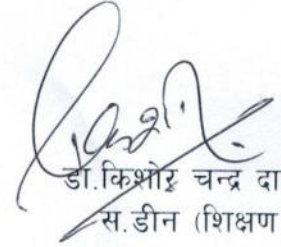 डॉ.किशोर चन्द्र दा
स.डीन (शिक्षण